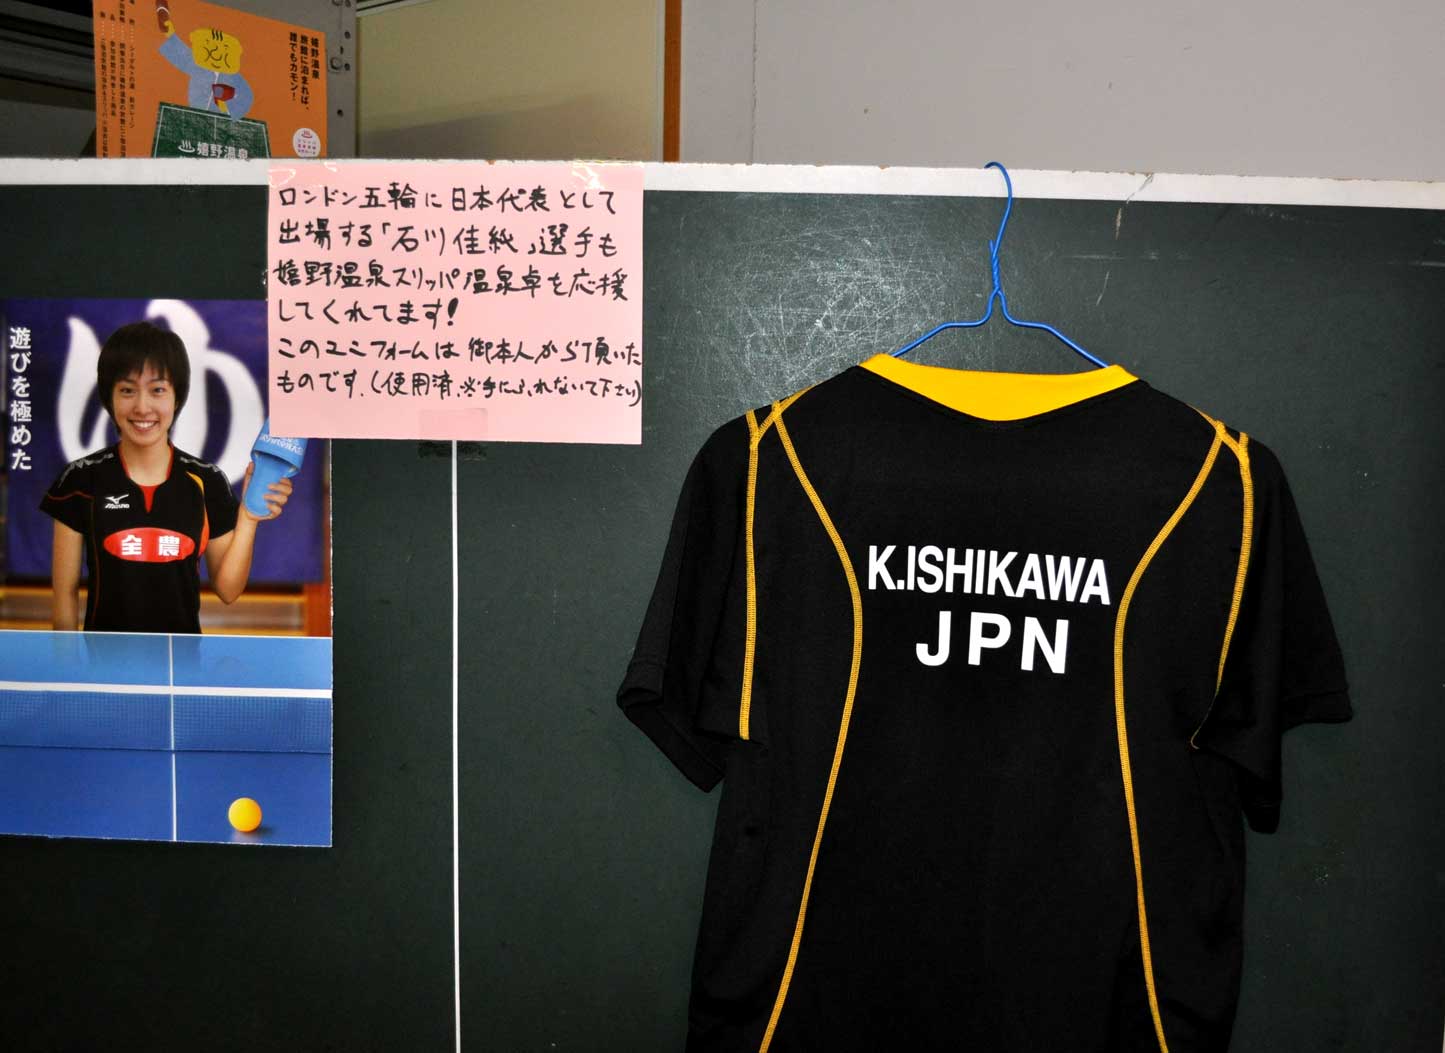 嬉野温泉
旅館に泊まれば、
誰でもカモン！
嬉野温泉
ロンドン五輪に日本代表として
出場する「石川佳純」選手も
嬉野温泉スリッパ温泉卓を応援
してくれてます!
このユニフォームは御本人から頂いた
ものです.(使用済.※手にふれないで下さい)
遊びを極めた
ゆ
MIZUNO
全農
K.ISHIKAWA
JPN